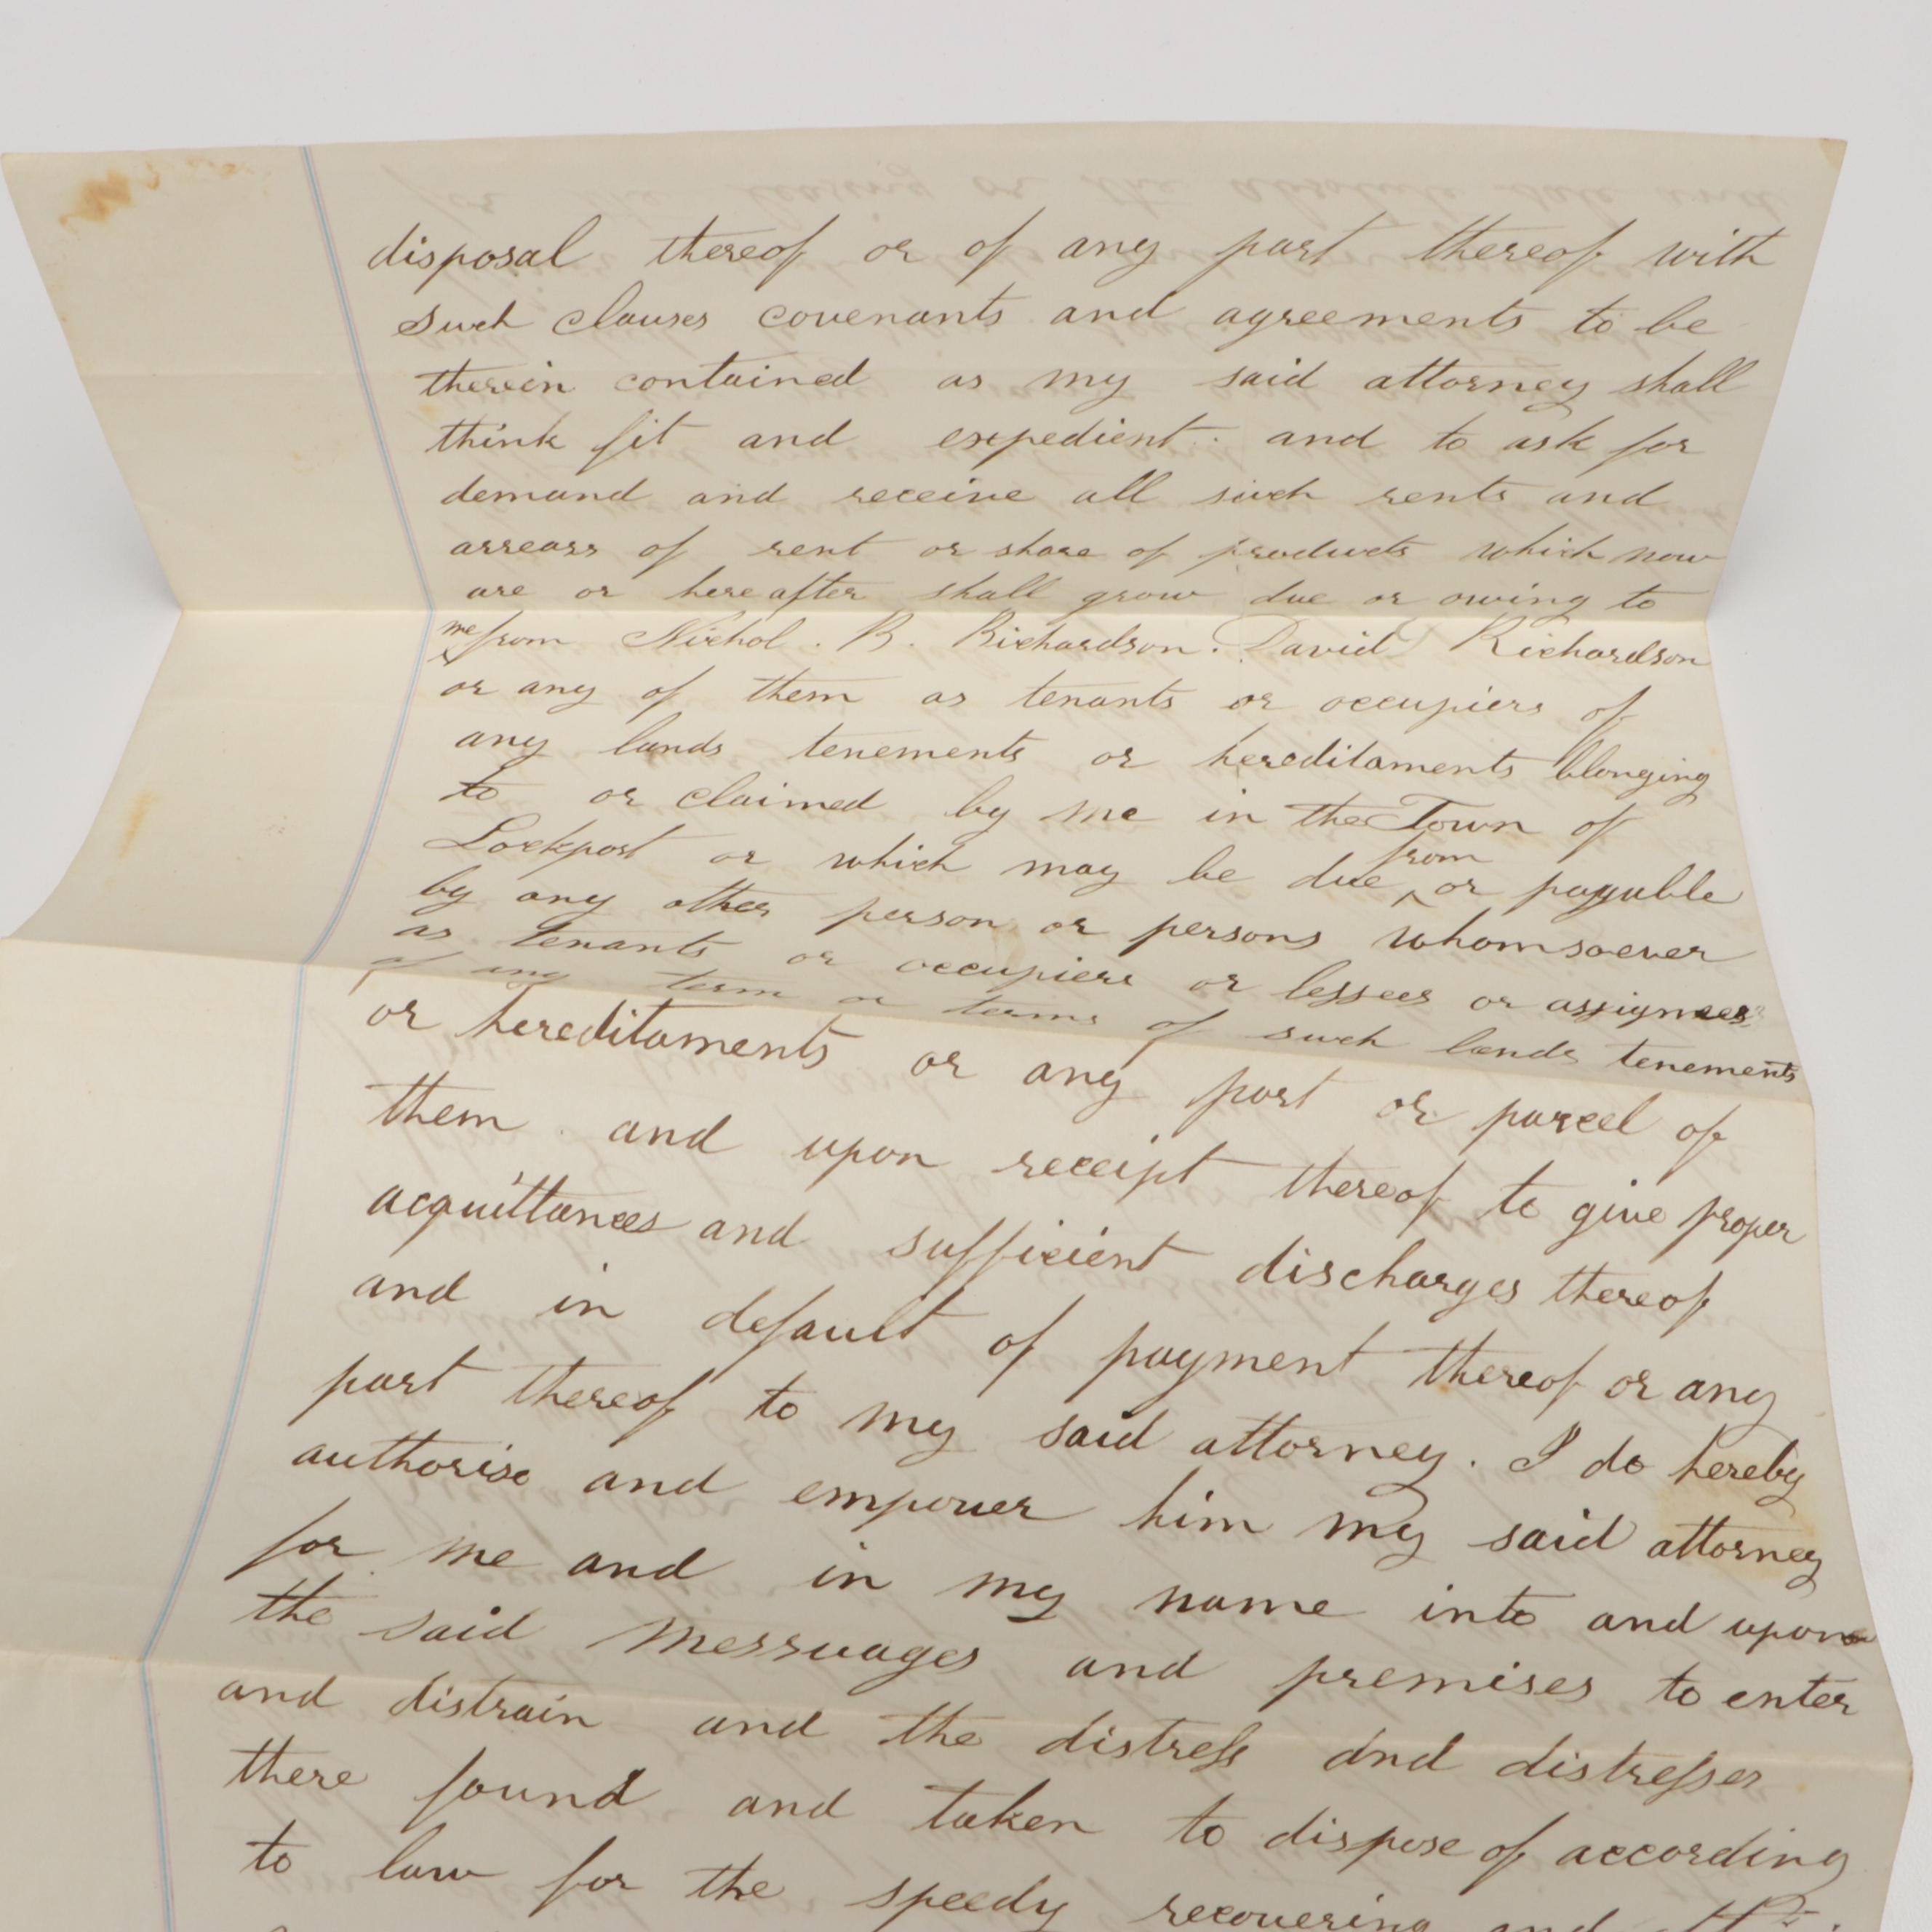 disposal thereof or of any part thereof with
such clauses covenants and agreements to be
therein contained as my said attorney shall
think fit and expedient. and to ask for
demand and receive all such rents and
arrears of rent or share of products which now
are or hereafter shall grow due or owing to
me from Nichol. B. Richardson. David Richardson
or any of them as tenants or occupiers of
any lands tenements or hereditaments blonging
to or claimed by me in the Town of
Lockport or which may be due from or payable
by any other person or persons whomsoever
as tenants or occupiers or lessees or assignees
of any term or terms of such lands tenements
or hereditaments or any part or parcel of
them and upon receipt thereof to give proper
acquittances and sufficient discharges thereof
and in default of payment thereof or any
part thereof to my said attorney. I do hereby
authorise and empower him my said attorney
for me and in my name into and upon
the said messuages and premises to enter
and distrain and the distress and distresses
there found and taken to dispose of according
to law for the speedy recovering and